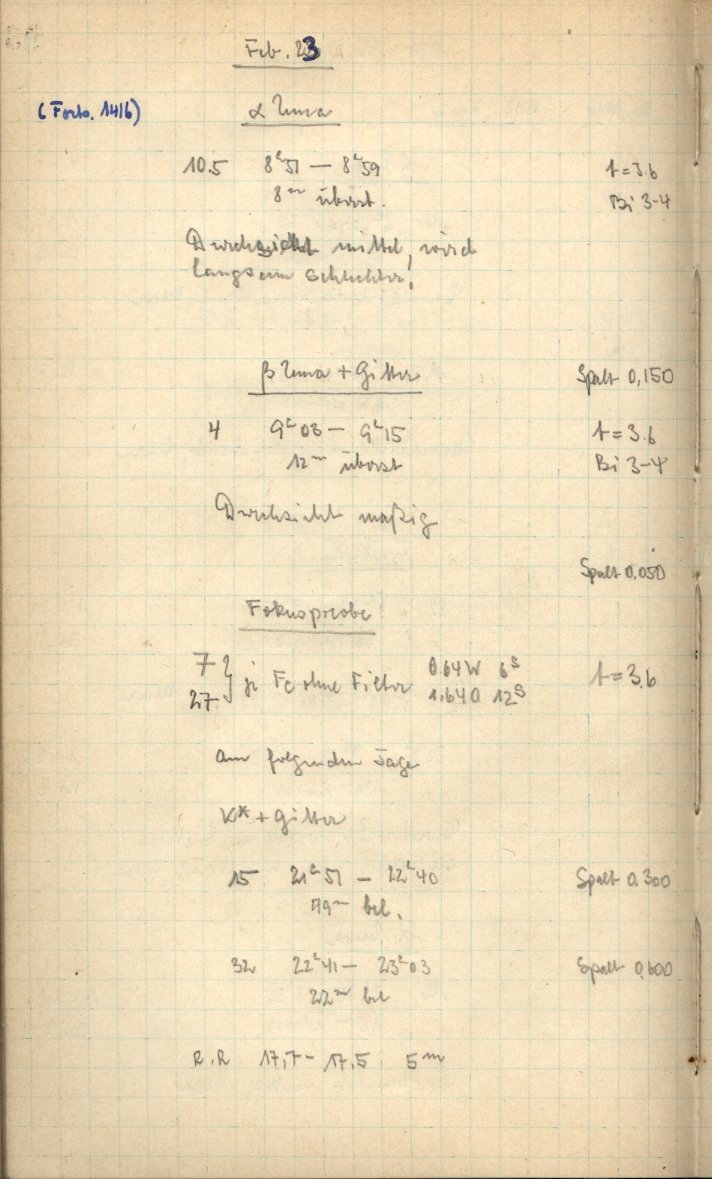 Feb. 23
(Forts. 1416)
α Uma
10.5 8ʰ51 — 8ʰ59 t=3.6
8ᵐ überst. Bi 3-4
Durchsicht mittel, wird
langsam schlechter!
β Uma + Gitter Spalt 0,150
4 9ʰ03 — 9ʰ15 t=3.6
12ᵐ überst Bi 3-4
Durchsicht mäßig
Spalt 0.050
Fokusprobe
7 } je Fe ohne Filter 0.64W 6ˢ t=3.6
27 1.640 12ˢ
Am folgenden Tage
K* + Gitter
15 21ʰ51 — 22ʰ40 Spalt 0.300
49ᵐ bel.
32 22ʰ41 — 23ʰ03 Spalt 0,600
22ᵐ bel
R.R 17,7 - 17,5 5ᵐ